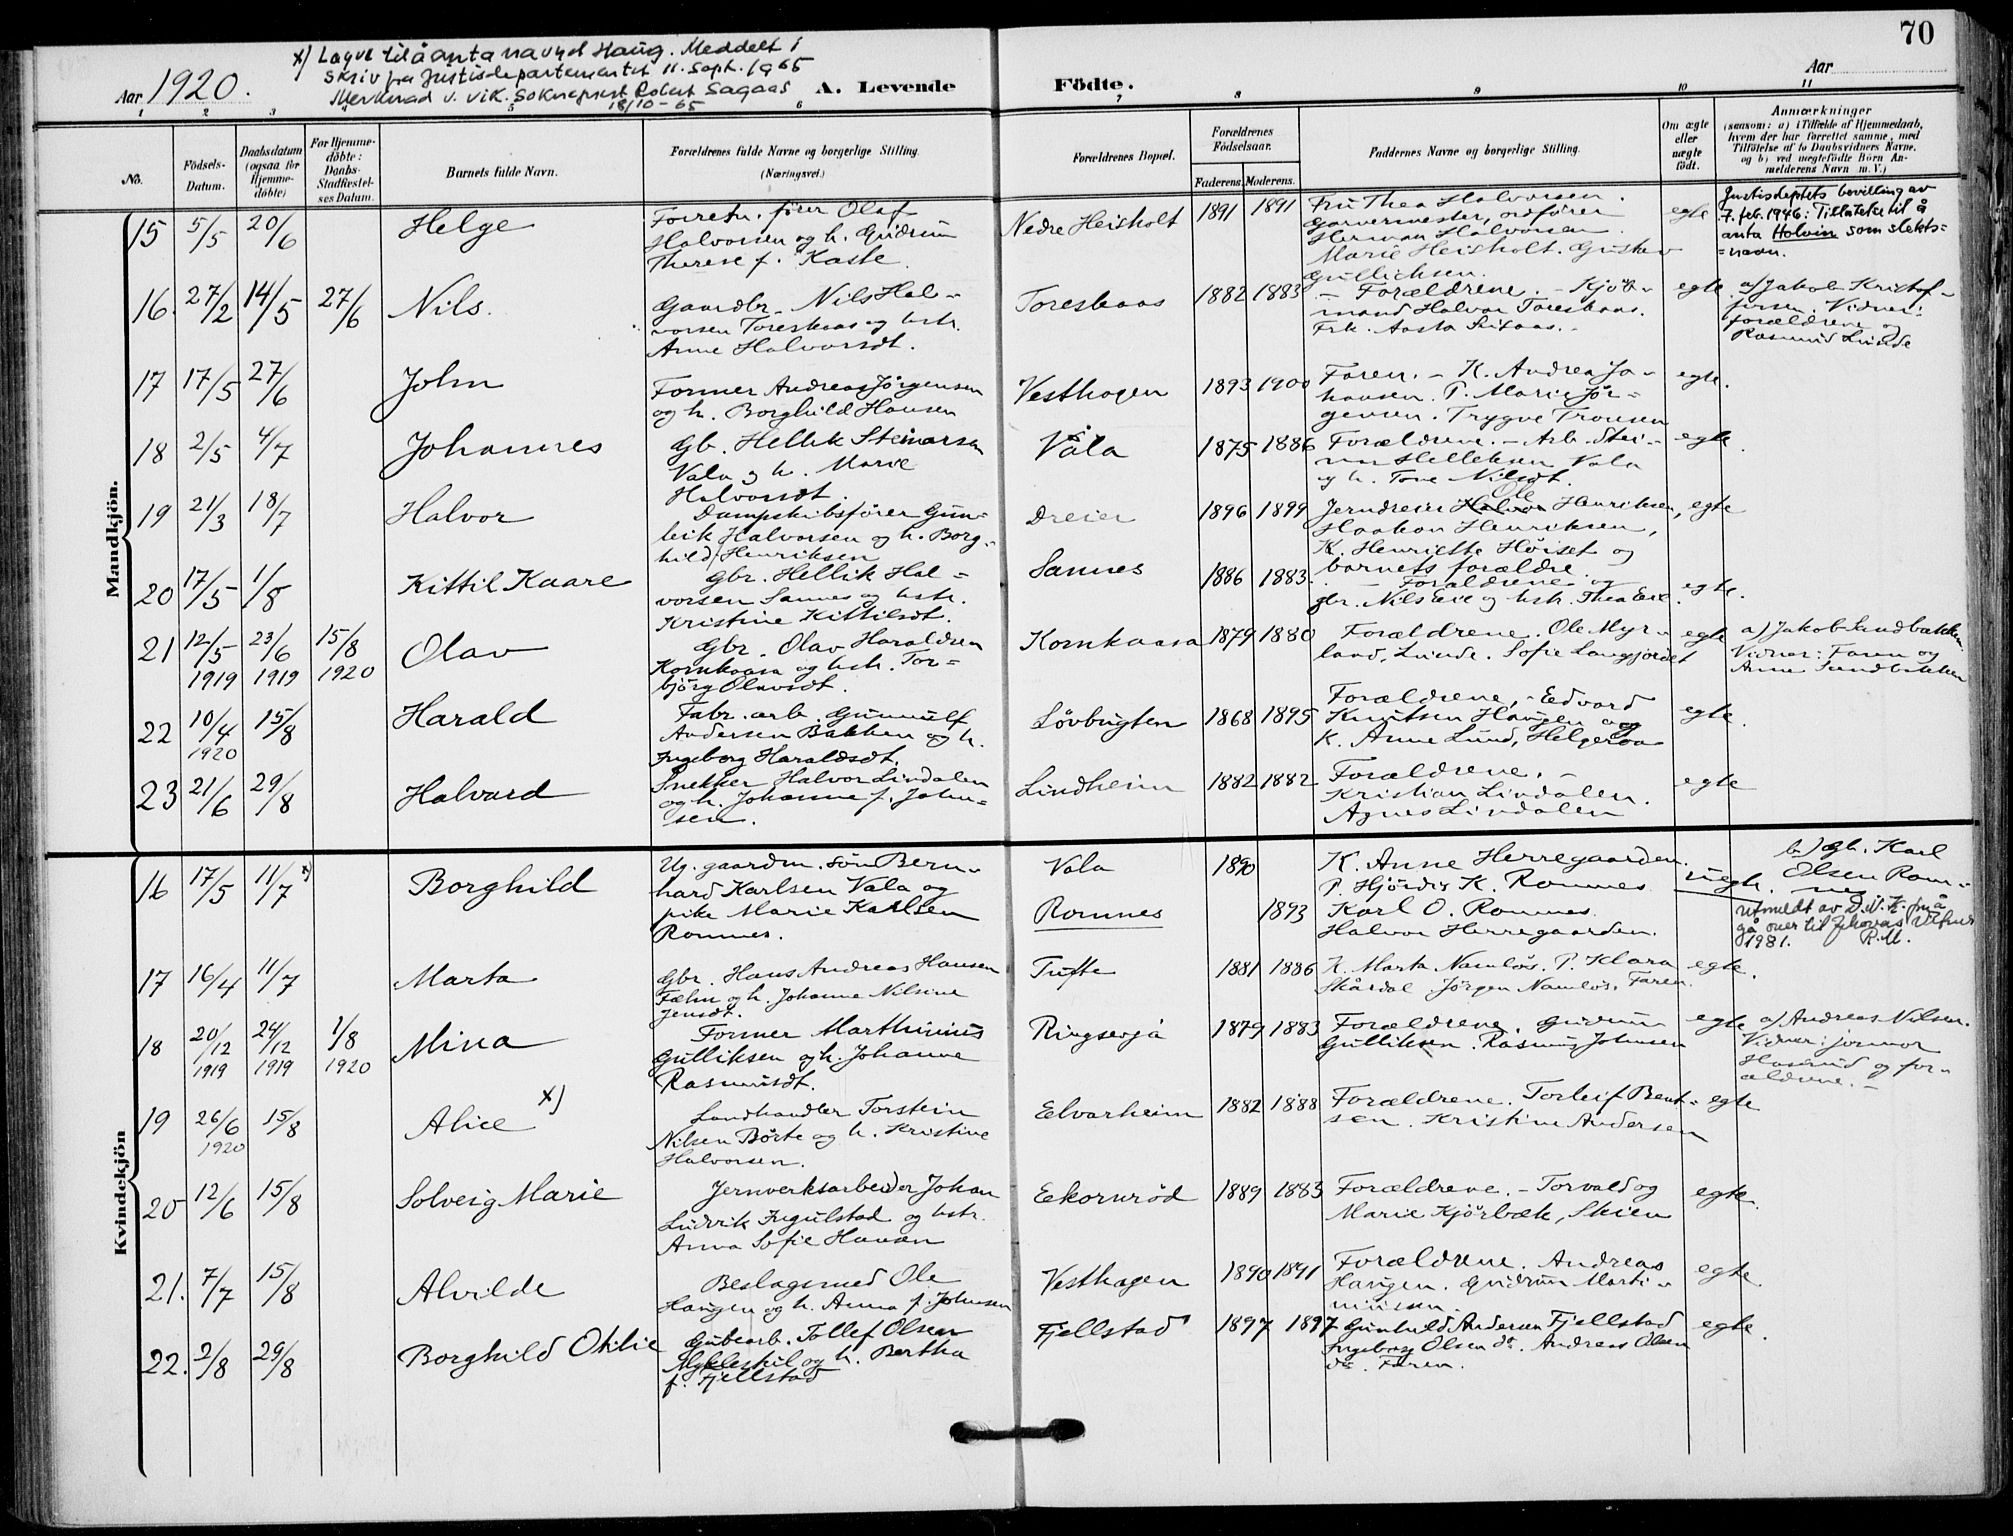 70
x) Løyve til å anta navnet Haug. Meddelt i
skriv fra Justisdepartementet 11. Sept. 1965
Merknad v. vik. Sokneprest Robert Sagaas
18/10-65
Aar 1920.
A. Levende Födte.
Aar
1 2 3 5 6 7 8 9 10 11
No.
Födsels-
Datum.
Daabsdatum
(ogsaa for
Hjemme-
döbte)
For Hjemme-
döbte:
Daabs-
Stadfæstel-
ses Datum.
Barnets fulde Navn.
Forældrenes fulde Navne og borgerlige Stilling.
(Næringsvei.)
Forældrenes Bopæl.
Forældrenes
Födselsaar.
Faderens. Moderens.
Faddernes Navne og borgerlige Stilling.
Om ægte
eller
uægte
födt.
Anmærkninger
(saasom: a) i Tilfælde af Hjemmedaab,
hvem der har forrettet samme, med
Tilföielse af to Daabsvidners Navne,
og b) ved uægtefödte Börn An-
melderens Navn m. V.)
Mandkjön.
15 5/5 20/6 Helge
Forretn. fører Olaf
Halvorsen og h. Gudrun
Therese f. Kaste.
Nedre Heisholt 1891 1891
Fru Thea Halvorsen.
Garvermester, ordfører
Herman Halvorsen.
Marie Heisholt. Gustav
Gullichsen.
egte
Justisdeptets bevilling av
7. feb. 1946: Tillatelse til å
anta Holvin som slekts=
=navn.
16. 27/2 14/5 27/6 Nils.
Gaardbr. Nils Hal-
vorsen Toreskaas og hstr.
Anne Halvorsdt.
Toreskaas 1882 1883
- Forældrene. - Kjøb-
mand Halvor Toreskaas.
Frk. Aasta
egte
a) Jakob Kristof-
fersen. Vidner:
forældrene og
Rasmus Lunde
17 17/5 27/6 John
Former Andreas Jørgensen
og h. Borghild Hansen
Vesthagen 1893 1900
Faren. - K. Andrea Jo-
hansen. P. Marie Jør-
gensen. Trygve Tronsen
egte.
18 2/5 4/7 Johannes
Gb. Hellik Steinarsen
Vala og h. Marie
Halvorsdt.
Våla 1875 1886
Forældrene. - Arb. Stei-
nar Helleksen Vala
og h. Tone Nilsdt.
egte.
19 21/3 18/7 Halvor
Dampskibsfører Gun-
leik Halvorsen og h. Borg-
hild Henriksen
Dreier 1896 1899
Ole
Jerndreier Halvor Henriksen,
Haakon Henriksen,
K. Henriette Høiset og
barnets forældre.
egte
20 17/5 1/8 Kittil Kaare
Gbr. Hellik Hal=
vorsen Sannes og hstr.
Kristine Kittilsdt.
Sannes 1886 1883.
- Forældrene og
gbr. Nils Eeie og hstr. Thea Eeie.
egte.
21 12/5 1919 23/6 1919 15/8 1920 Olav
Gbr. Olav Haraldsen
Kornkaasa og hstr. Tor=
bjørg Olavsdt.
Kornkaasa 1879 1880
Forældrene. Ole Myr-
land, Lunde. Sofie Langjordet
egte
a) Jakob Sundbakken.
Vidner: Faren og
Anne Sundbakken
22 10/4 1920 15/8 Harald
Fabr. arb. Gunnulf
Andersen Bakken og h.
Ingeborg Haraldsdt.
Løvbugten 1868 1895
Forældrene, - Edvard
Knutsen Haugen og
K. Anne Lund, Helgeroa
egte.
23 21/6 29/8 Halvard
Snekker Halvor Lindalen
og h. Johanne f. John-
sen.
Lindheim 1882 1882
Forældrene. -
Kristian Lindalen.
Agnes Lindalen
egte
Kvindekjön
16 17/5 11/7 x) Borghild
Ug. gaardm. søn Bern-
hard Karlsen Vala og
pike Marie Karlsen
Romnes.
Vala 1890
Romnes 1893
K. Anne Herregaarden.
P. Hjørdis K. Romnes.
Karl O. Romnes.
Halvor Herregaarden.
uegte.
b) gb. Karl
Elsen Rom-
nes
Utmeldt av D.N.K. for å
gå over til Jehovas Vitner
1981. R.M.
17 16/4 11/7 Marta
Gbr. Hans Andreas Hansen
Fæhn og h. Johanne Nilsine
Jensdt.
Tufte 1881 1886
K. Marta Namløs. P. Klara
Skårdal. Jørgen Namløs. Faren.
egte.
18 20/12 1919 24/12 1919 1/8 1920 Mina
Former Marthinius
Gulliksen og h. Johanne
Rasmusdt.
Ringsevja 1879 1883
Forældrene. Gudrun
Gulliksen. Rasmus Johnsen
egte
a) Andreas Nilsen.
Vidner: jormor
Haslund og for-
ældrene. -
19 26/6 1920 15/8 Alice x)
Landhandler Torstein
Nilsen Børte og h. Kristine
Halvorsen.
Eelvarheim 1882 1888
Forældrene. Torleif Bent-
sen. Kristine Andersen
egte
20 12/6 15/8 Solveig Marie
Jernverksarbeider Johan
Ludvik Ingulstad og hstr.
Anna Sofie Hansen
Eekornrød 1889 1883
Forældrene. - Torvald og
Marie Kjørbæk, Skien
egte.
21. 7/7 15/8 Alvilde
Beslagsmed Ole
Haugen og h. Anna f. Johnsen
Vesthagen 1890 1891
Forældrene. Andreas
Haugen. Gudrun Marti-
niussen.
egte.
22. 2/8 29/8 Borghild Otilie
Grubearb. Tollef Olsen
Mykleskil og h. Bertha
f. Fjellstad
Fjellstad 1897 1897
Gunhild Andersen Fjellstad
Ingeborg Olsen do. Andreas Olsen
do. Faren.
egte.